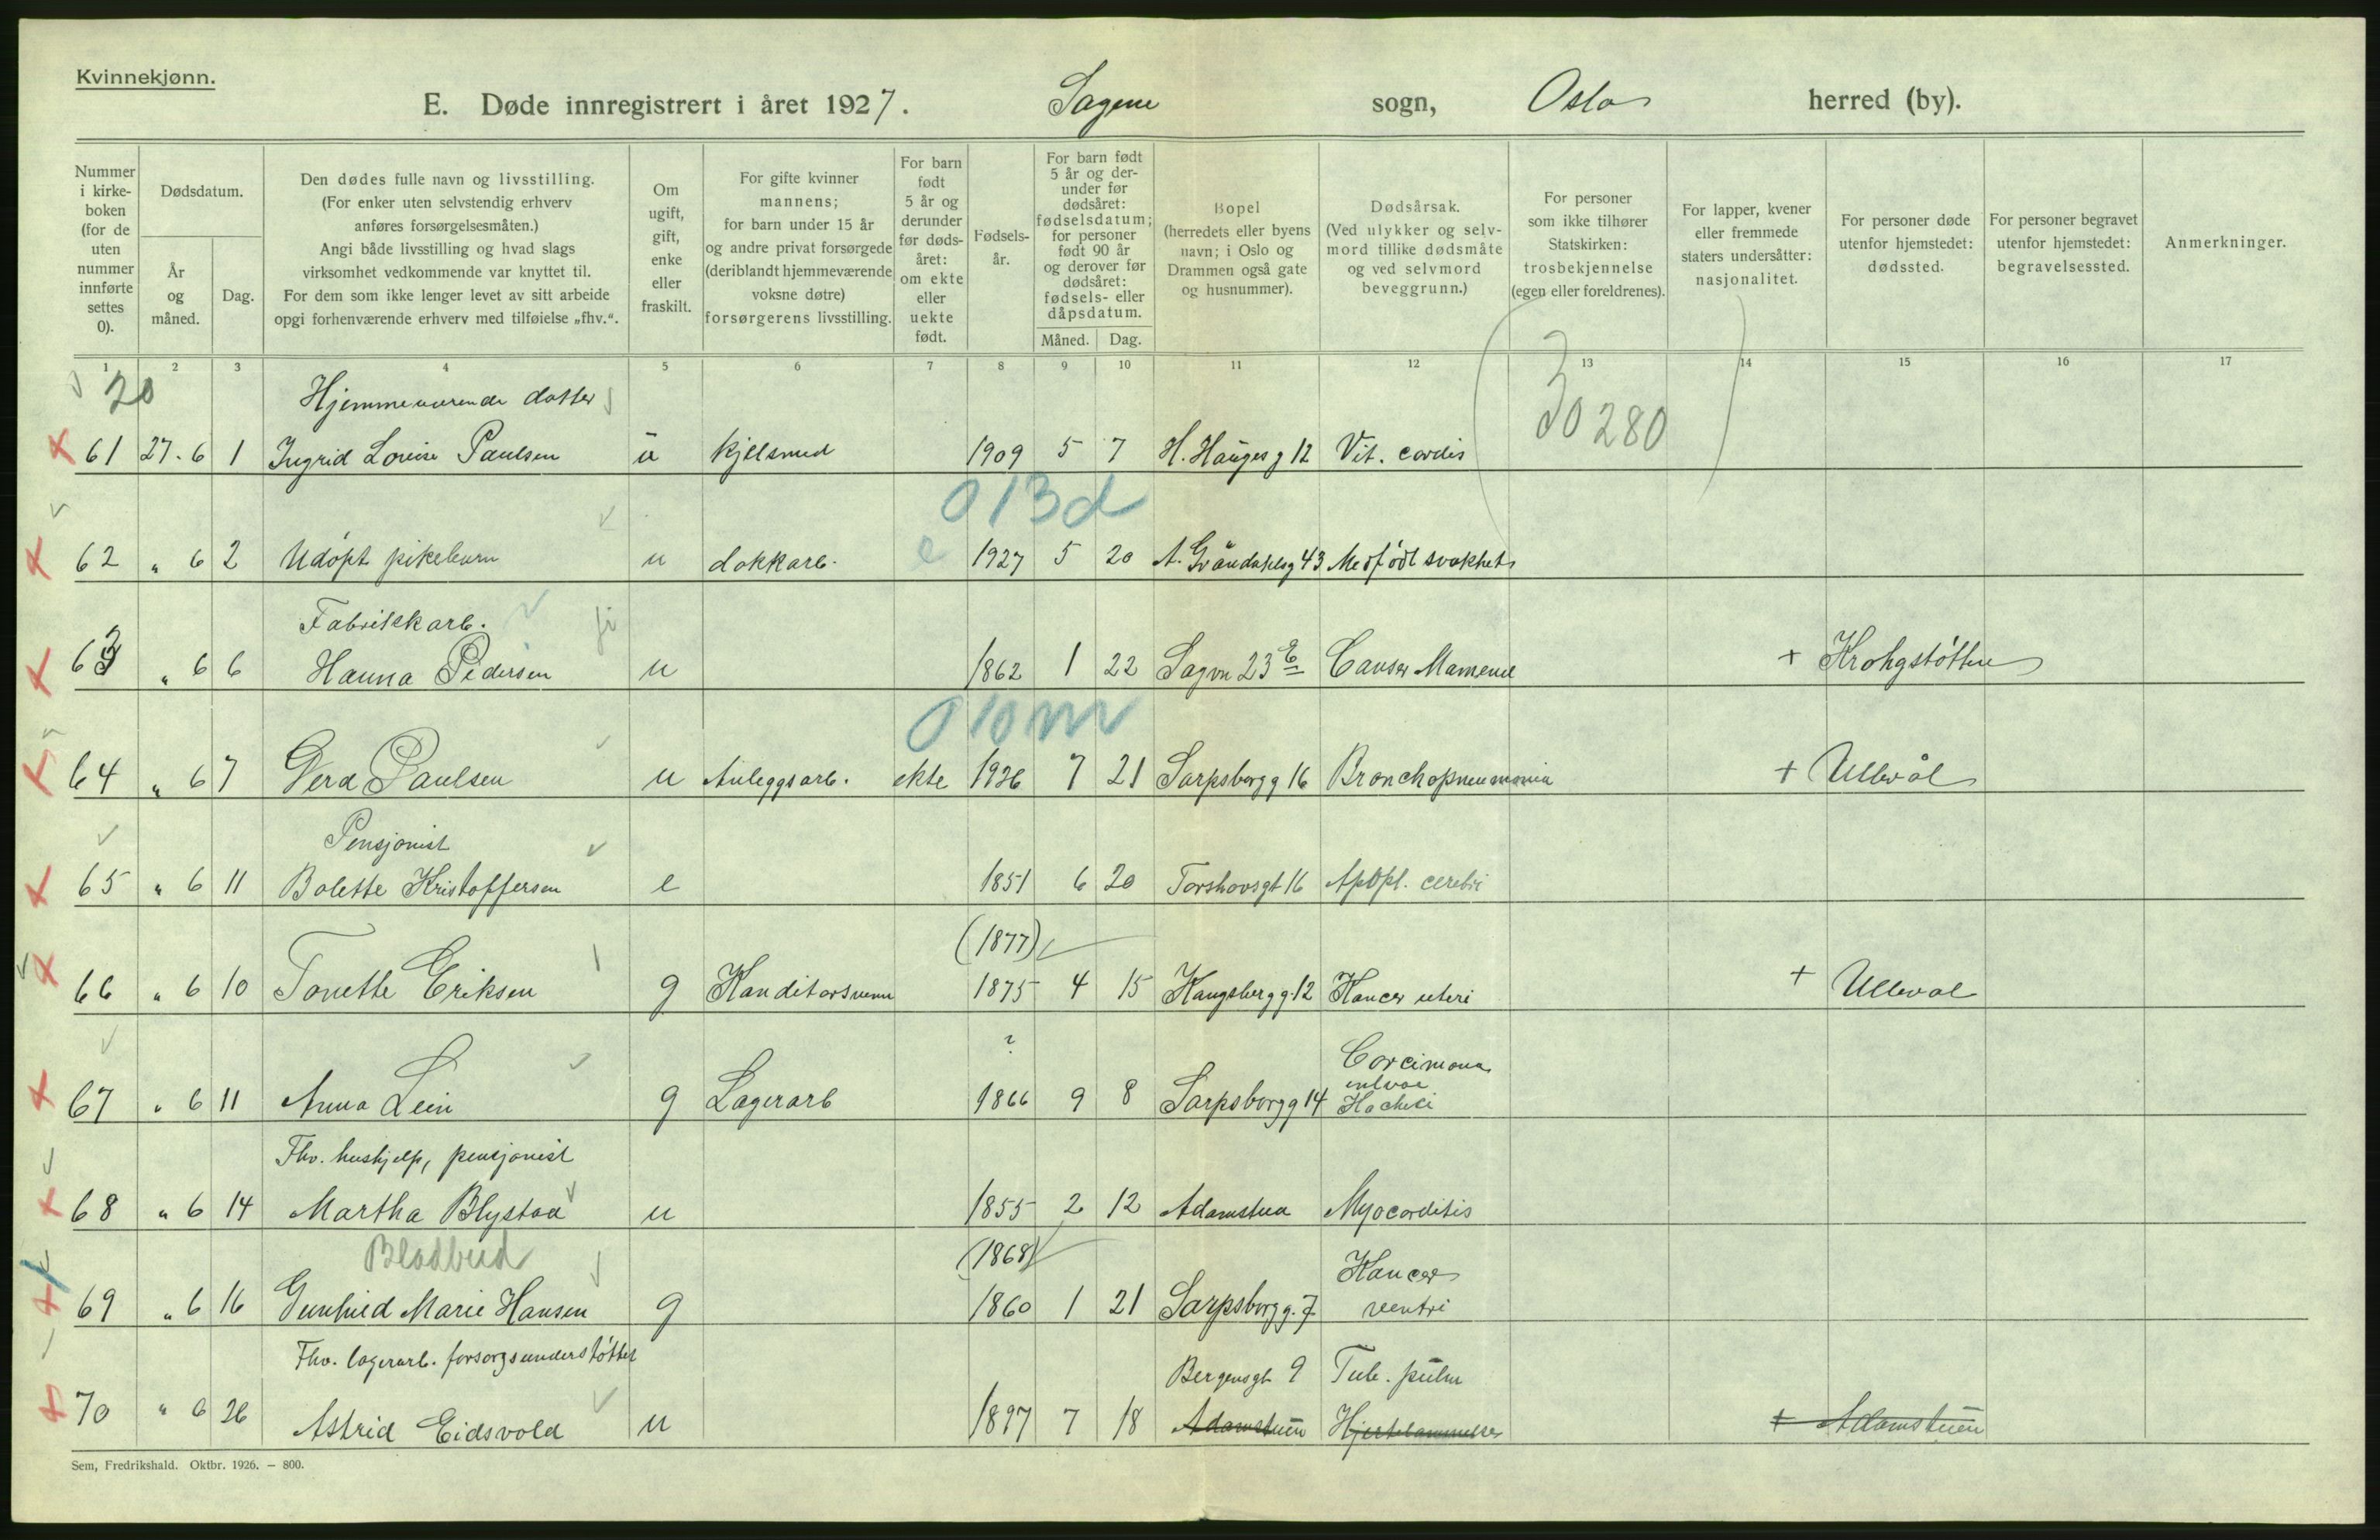 Kvinnekjønn.
E. Døde innregistrert i året 1927. Sagene sogn, Oslo herred (by).
Nummer i kirkeboken (for de uten nummer innførte settes 0).
Dødsdatum.
År og måned.
Dag.
Den dødes fulle navn og livsstilling.
(For enker uten selvstendig erhverv
anføres forsørgelsesmåten.)
Angi både livsstilling og hvad slags
virksomhet vedkommende var knyttet til.
For dem som ikke lenger levet av sitt arbeide
opgi forhenværende erhverv med tilføielse „fhv.“.
Om ugift, gift, enke eller fraskilt.
For gifte kvinner
mannens;
for barn under 15 år
og andre privat forsørgede
(deriblandt hjemmeværende
voksne døtre)
forsørgerens livsstilling.
For barn født 5 år og derunder før dødsåret: om ekte eller uekte født.
Fødselsår.
For barn født 5 år og derunder før dødsåret: fødselsdatum; for personer født 90 år og derover før dødsåret: fødsels- eller dåpsdatum.
Måned. Dag.
Bopel
(herredets eller byens
navn; i Oslo og
Drammen også gate
og husnummer).
Dødsårsak.
(Ved ulykker og selvmord tillike dødsmåte
og ved selvmord
beveggrunn.)
For personer
som ikke tilhører
Statskirken:
trosbekjennelse
(egen eller foreldrenes).
For lapper, kvener
eller fremmede
staters undersåtter:
nasjonalitet.
For personer døde
utenfor hjemstedet:
dødssted.
For personer begravet
utenfor hjemstedet:
begravelsessted.
Anmerkninger.
1 2 3 4 5 6 7 8 9 10 11 12 13 14 15 16 17
20 Hjemmeværende datter
30280
61 27. 6 1 Ingrid Louise Paulsen u kjelsmed 1909 5 7 H. Haugesg 12 Vit. cordis
013d
62 " 6 2 Udøpt pikebarn u dokkarb. e 1927 5 20 A. Grøndahlsg 43 Medfødt svakhet
Fabrikkarb.
63 " 6 6 Hanna Pedersen u 1862 1 22 Sagvn 23 E Cancer Mamene + Krohgstøtten
010m
64 " 6 7 Gerd Paulsen u Anleggsarb. ekte 1926 7 21 Sarpsborgg 16 Bronchopneumonia + Ullevål
Pensjonist
65 " 6 11 Bolette Kristoffersen e 1851 6 20 Torshovsgt 16 Apopl. cerebri
(1877)
66 " 6 10 Tonette Eriksen g Kanditorsvenn 1875 4 15 Kongsbergg. 12 Kancer uteri + Ulleval
?
67 " 6 11 Anna Lein g Lagerarb 1866 9 8 Sarpsborgg 14 Corcimona
Fhv. hushjelp, pensjonist
68 " 6 14 Martha Blystad u 1855 2 12 Adamstua Myocarditis
Bladbud (1868)
69 " 6 16 Gunhild Marie Hansen g 1860 1 21 Sarpsborgg. 7 Kancer ventri
Fhv. lagerarb. forsorgsunderstøttet Bergensgt 9 Tub. pulm
70 " 6 26 Astrid Eidsvold u 1897 7 18 Adamstuen Hjertelammelse + Adamstuen
Sem, Fredrikshald. Oktbr. 1926. — 800.